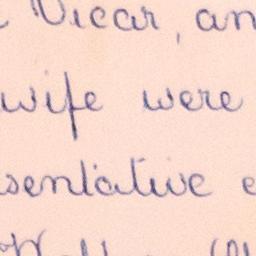 Vicar, an
wife were
sentative e